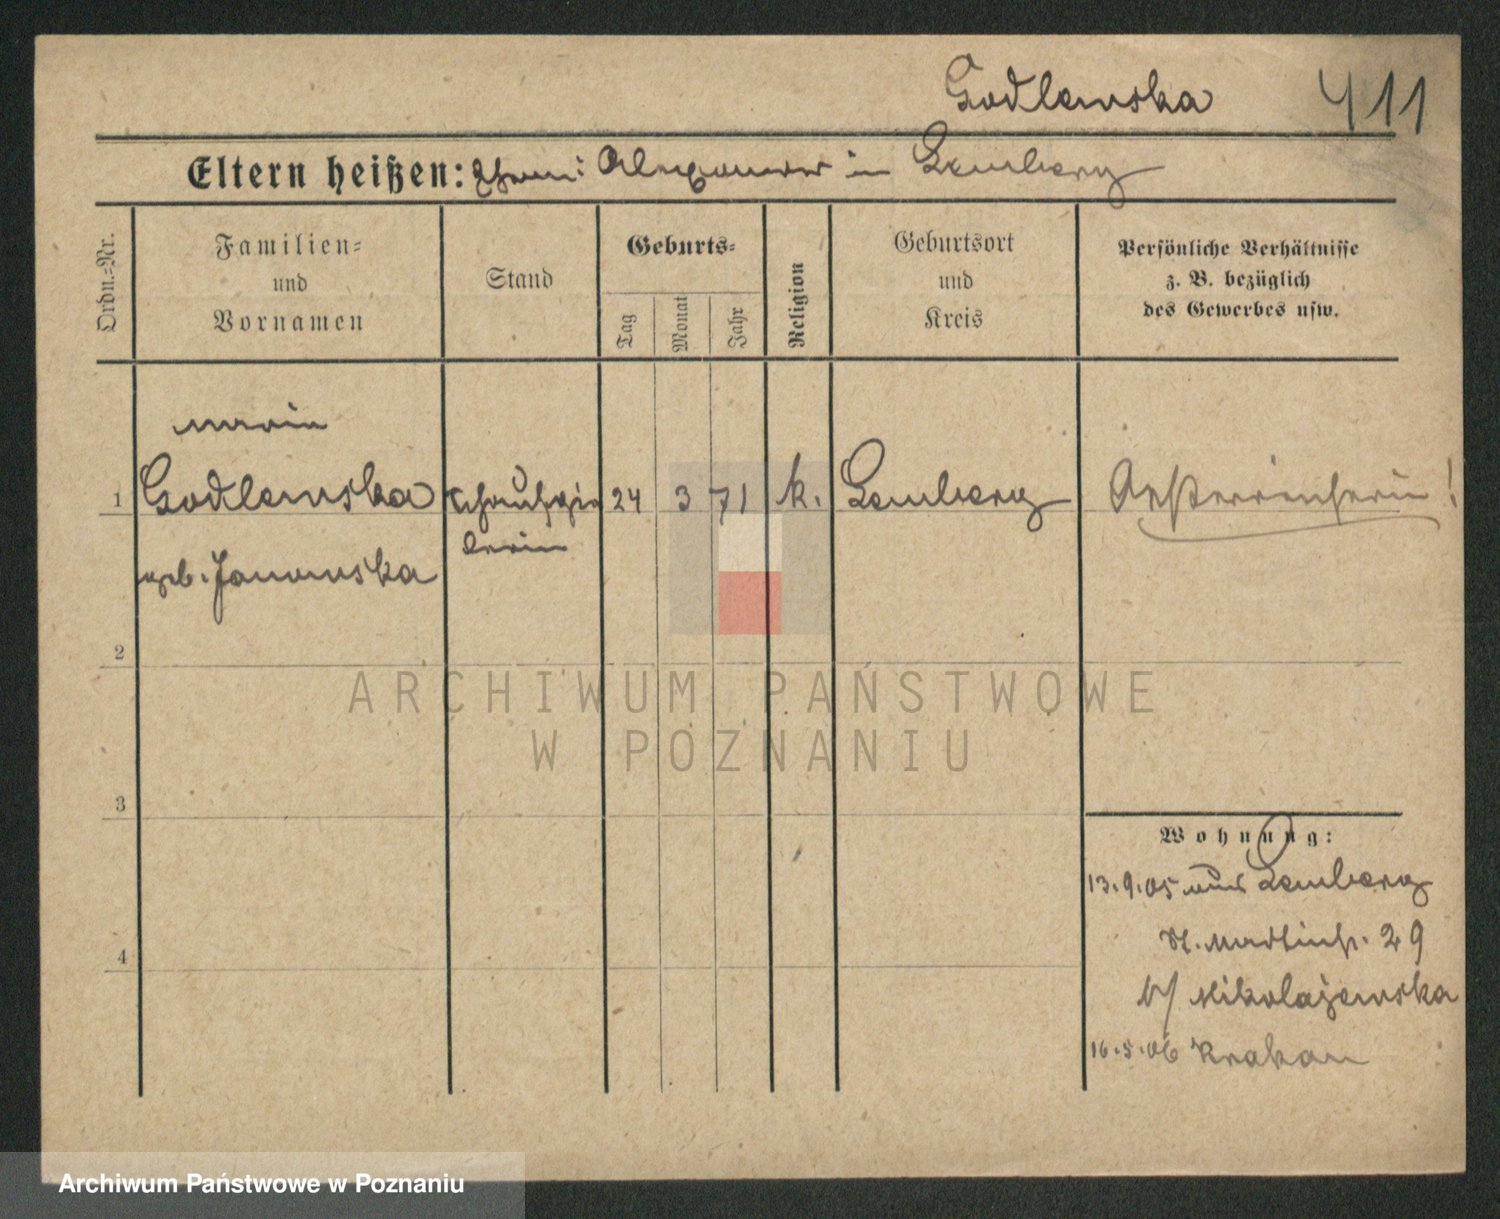 Godlewska 411
Eltern heißen: Ehem: Alexander in Lemberg
Ordn.-Nr.
Familien-
und
Vornamen
Stand
Geburts-
Tag
Monat
Jahr
Religion
Geburtsort
und
Kreis
Persönliche Verhältnisse
z. B. bezüglich
des Gewerbes usw.
Maria
1 Godlewska Schauspie 24 3 71 k. Lemberg Oesterreicherin!
lerin
geb. Janowska
2
3
4
Wohnung:
13.9.05 aus Lemberg
St. Martinstr. 29
b/ Mikolajewska
16.5.06 Krakau
ARCHIWUM PAŃSTWOWE
W POZNANIU
Archiwum Państwowe w Poznaniu